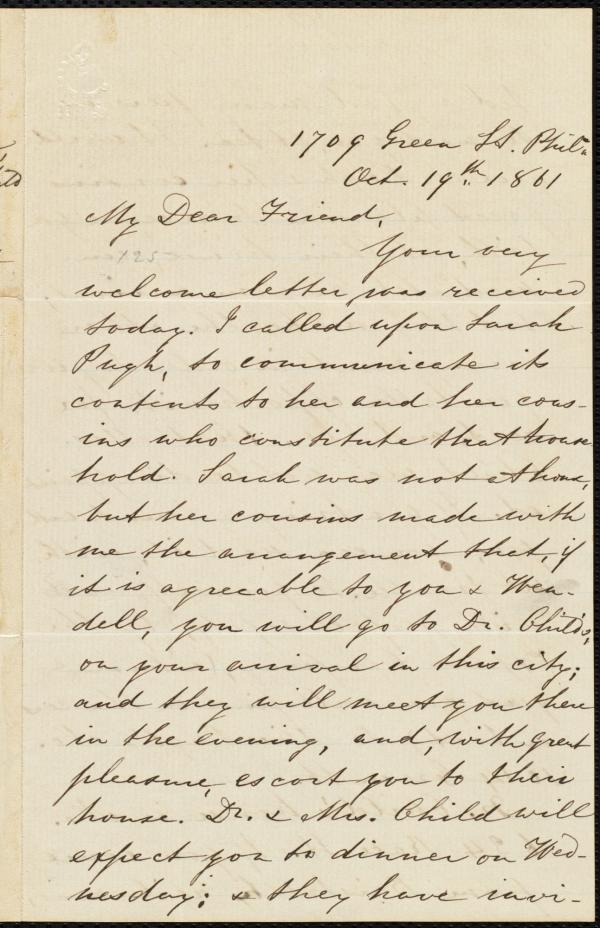 1709 Green St. Phila
Oct. 19th. 1861
My Dear Friend,
Your very
welcome letter was received
today. I called upon Sarah
Pugh, to communicate its
contents to her and her cous-
ins who constitute that house
hold. Sarah was not at home,
but her cousins made with
me the arrangement that, if
it is agreeable to you & Wen-
dell, you will go to Dr. Child's,
on your arrival in this city;
and they will meet you there
in the evening, and, with great
pleasure, escort you to their
house. Dr. & Mrs. Child will
expect you to dinner on Wed-
nesday; & they have invi-